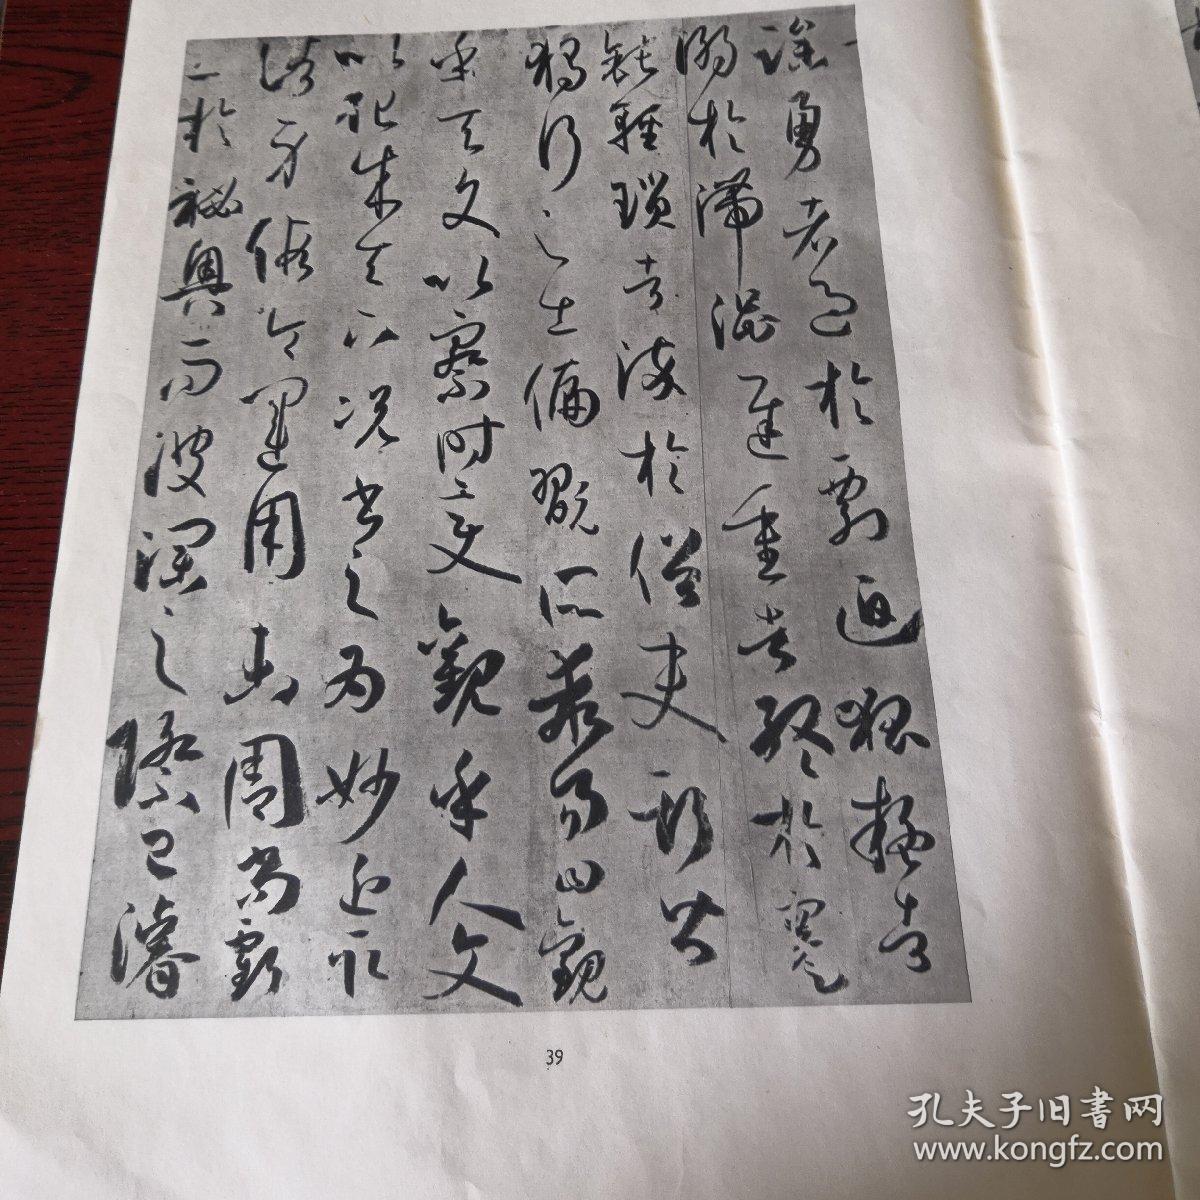 躁勇者過於剽迫狐疑者
溺於滯澀遲重者終於蹇
鈍輕瑣者淬於俗吏斯皆
獨行之士偏翫所乖易曰觀
乎天文以察時變觀乎人文
以化成天下況書之為妙近取
諸身假令運用未周尚虧
工於祕奧而波瀾之際已濬
39
孔夫子旧書网
www.kongfz.com